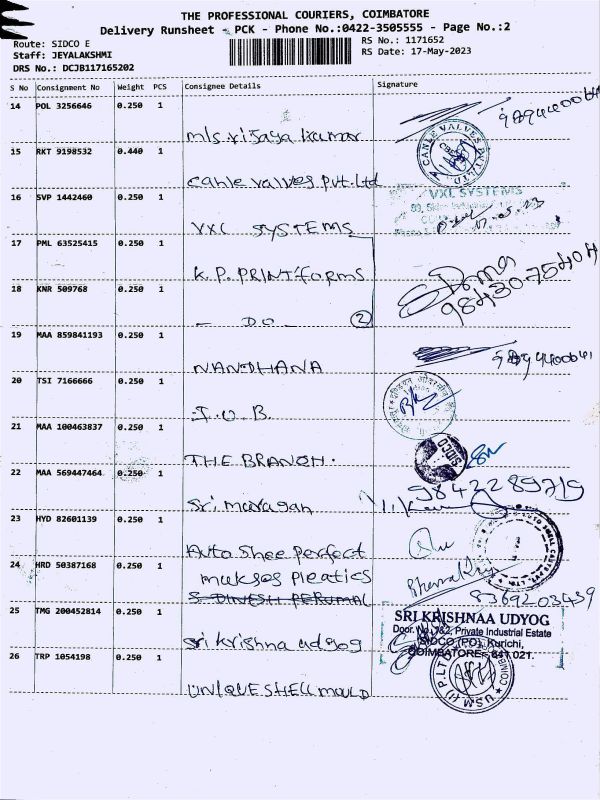 THE PROFESSIONAL COURIERS, COIMBATORE
Delivery Runsheet - PCK - Phone No.:0422-3505555 - Page No.:2
Route: SIDCO E
Staff: JEYALAKSHMI
DRS No.: DCJB117165202
RS No.: 1171652
RS Date: 17-May-2023
S No Consignment No Weight PCS Consignee Details Signature
14 POL 3256646 0.250 1
m/s vijaya kumar
15 RKT 9198532 0.440 1
CANLE VALVES
canle valves pvt.ltd
16 SVP 1442460 0.250 1
VXL SYSTEMS
17.05.23
VXL SYSTEMS
17 PML 63525415 0.250 1
K.P. PRINTforms
98430-75404
18 KNR 509768 0.250 1
- DO - 2
19 MAA 859841193 0.250 1
NANDHANA
20 TSI 7166666 0.250 1
I.O.B.
21 MAA 100463837 0.250 1
SIDCO
THE BRANCH.
22 MAA 569447464 0.250 1
9842289719
Sri murugan
23 HYD 82601139 0.250 1
Auto Shee perfect
24 HRD 50387168 0.250 1
8369203439
S DINESH PERUMAL
25 TMG 200452814 0.250 1
SRI KRISHNAA UDYOG
Door. No. 1&2, Private Industrial Estate
SIDCO (PO), Kurichi,
COIMBATORE - 641 021.
sri krishna udyog
26 TRP 1054198 0.250 1
USM (I) P.LTD
UNIQUE SHELL MOULD